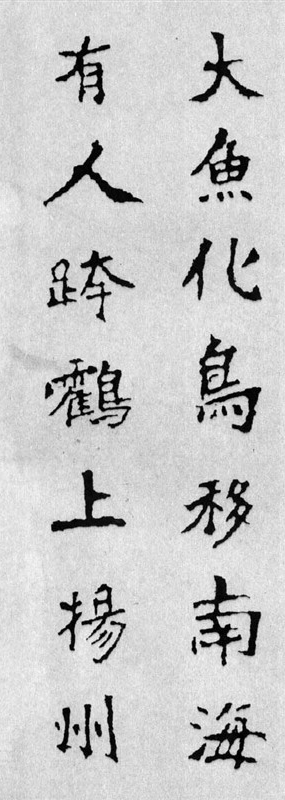 大魚化鳥移南海
有人跨鶴上揚州